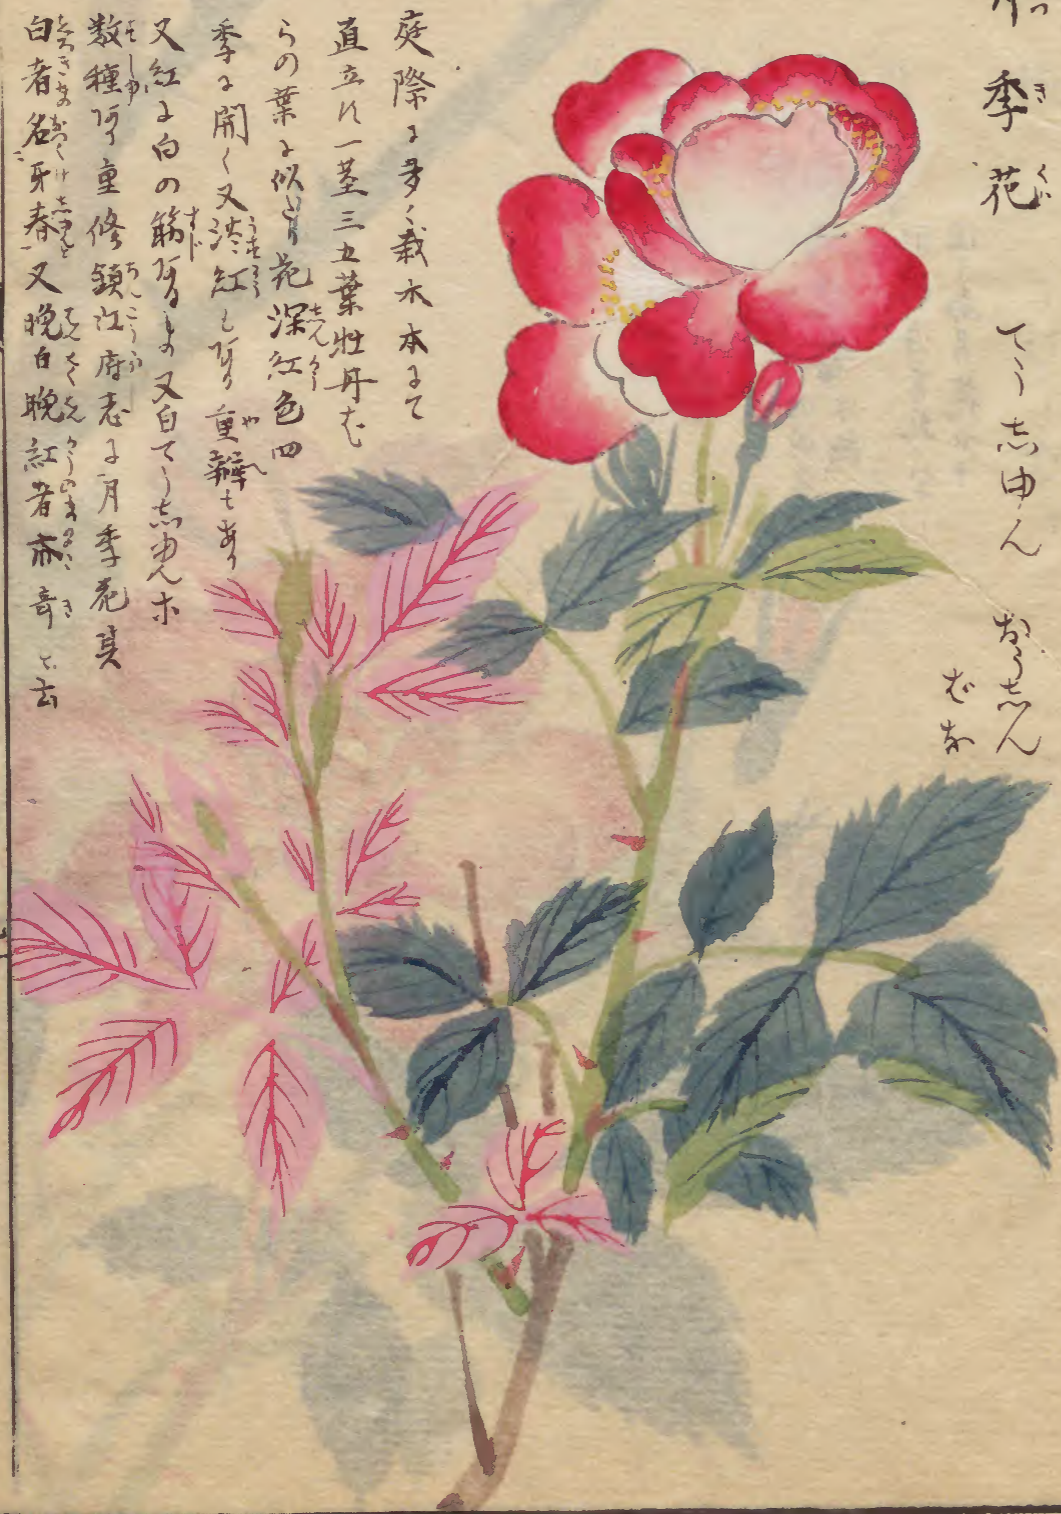 季花
きくハ
てうしゆん
かうしん
ばな
庭際に多く栽木本にて
直立す一茎三五葉牡丹ば
らの葉に似たり花深紅色四
季に開く又淡紅もあり重瓣もあり
又紅に白の筋あるもの又白てうしゆん等
数種あり重修鎮江府志に月季花
白者名 春又晩白晩紅者亦奇と云